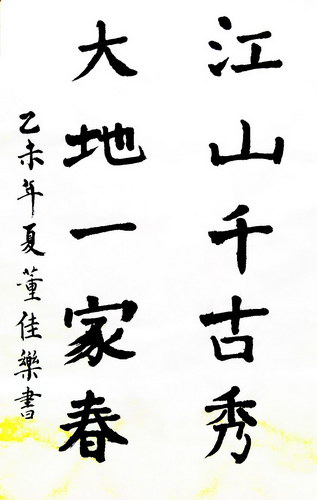 江山千古秀
大地一家春
乙未年夏董佳樂書